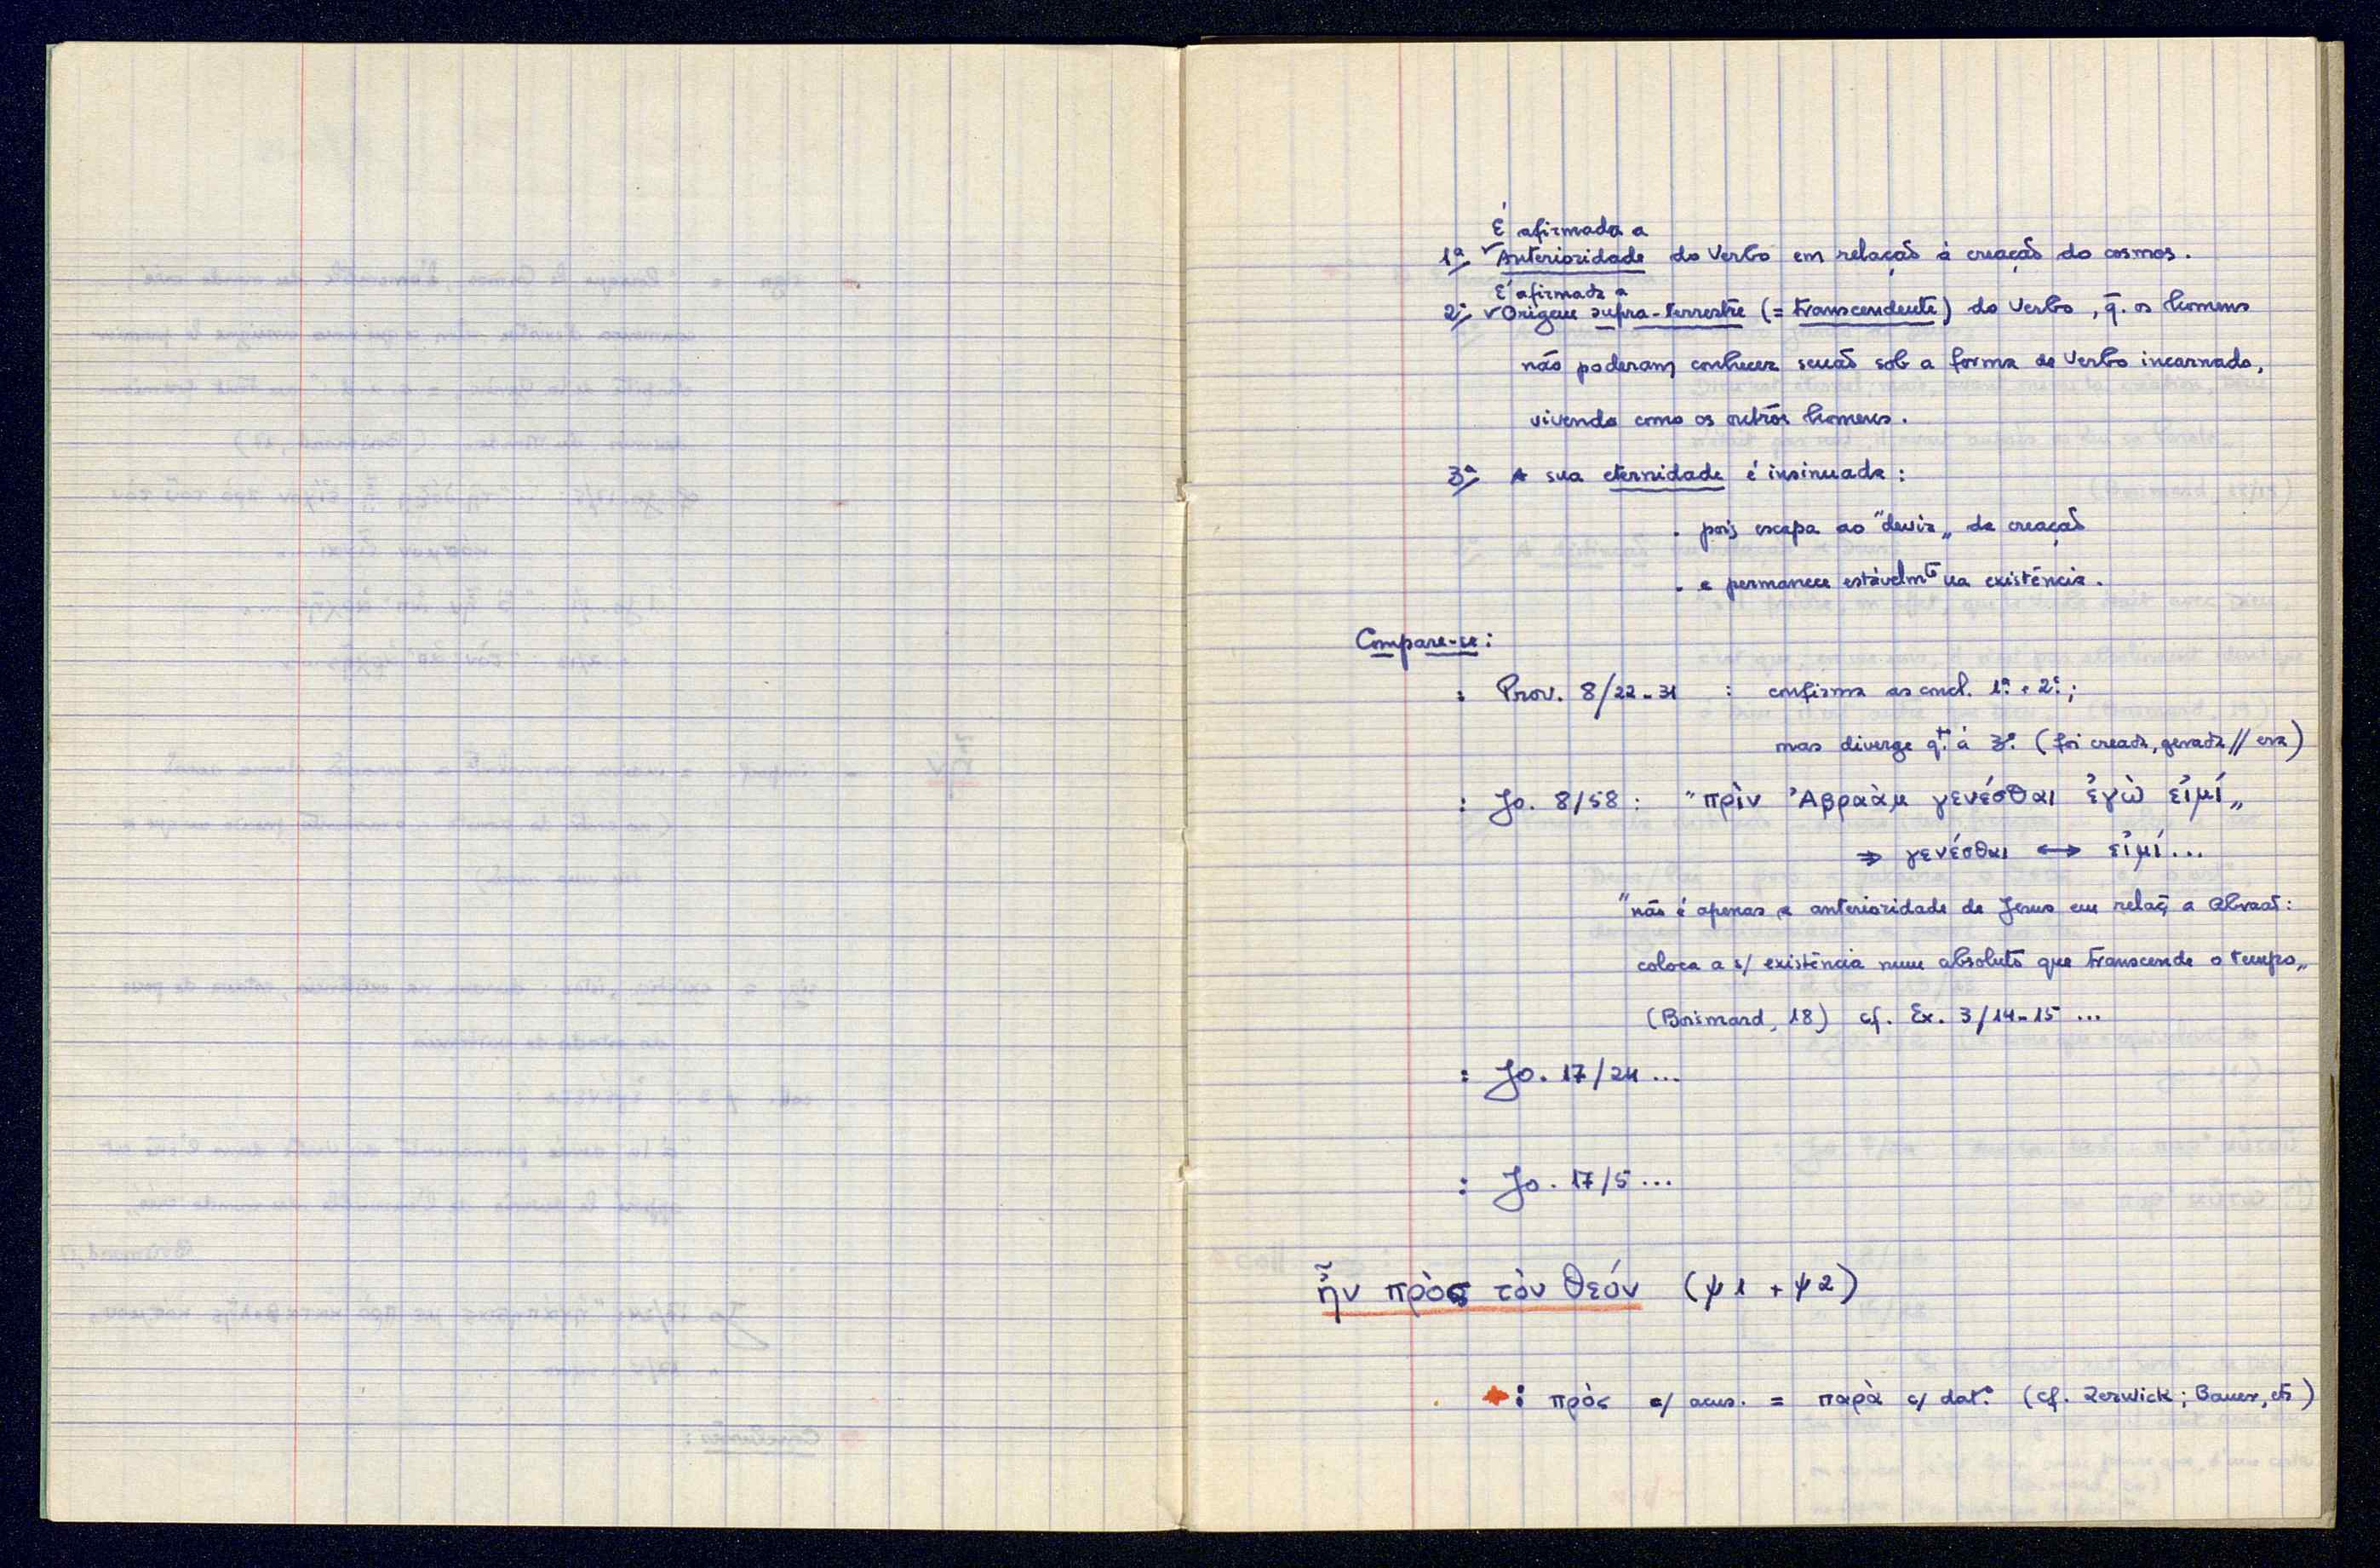 É afirmada a
1ª/ Anterioridade do Verbo em relação à creação do cosmos.
É afirmada a
2ª/ Origem supra-terrestre (= transcendente) do Verbo, q. os homens
não poderam conhecer senão sob a forma de Verbo incarnado,
vivendo como os outros homens.
3ª/ A sua eternidade é insinuada:
. pois escapa ao "devir„ da creação
. e permanece estávelmte na existência.
Compare-se:
: Prov. 8/22-31 : confirma as concl. 1ª. + 2ª.;
mas diverge qto. à 3ª. (foi creada, gerada // era)
: Jo. 8/58: "πρὶν Ἀβραὰμ γενέσθαι ἐγὼ εἰμί„
⇒ γενέσθαι ↔ εἰμί...
"não é apenas a anterioridade de Jesus em relaç. a Abraão:
coloca a s/ existência num absoluto que transcende o tempo„
(Boismard, 18) cf. Ex. 3/14-15 ...
: Jo. 17/24 ...
: Jo. 17/5 ...
ἦν πρὸς τὸν θεόν (ψ1 + ψ2)
: πρὸς c/ acus. = παρὰ c/ dat.º (cf. Zerwick; Bauer, etc)